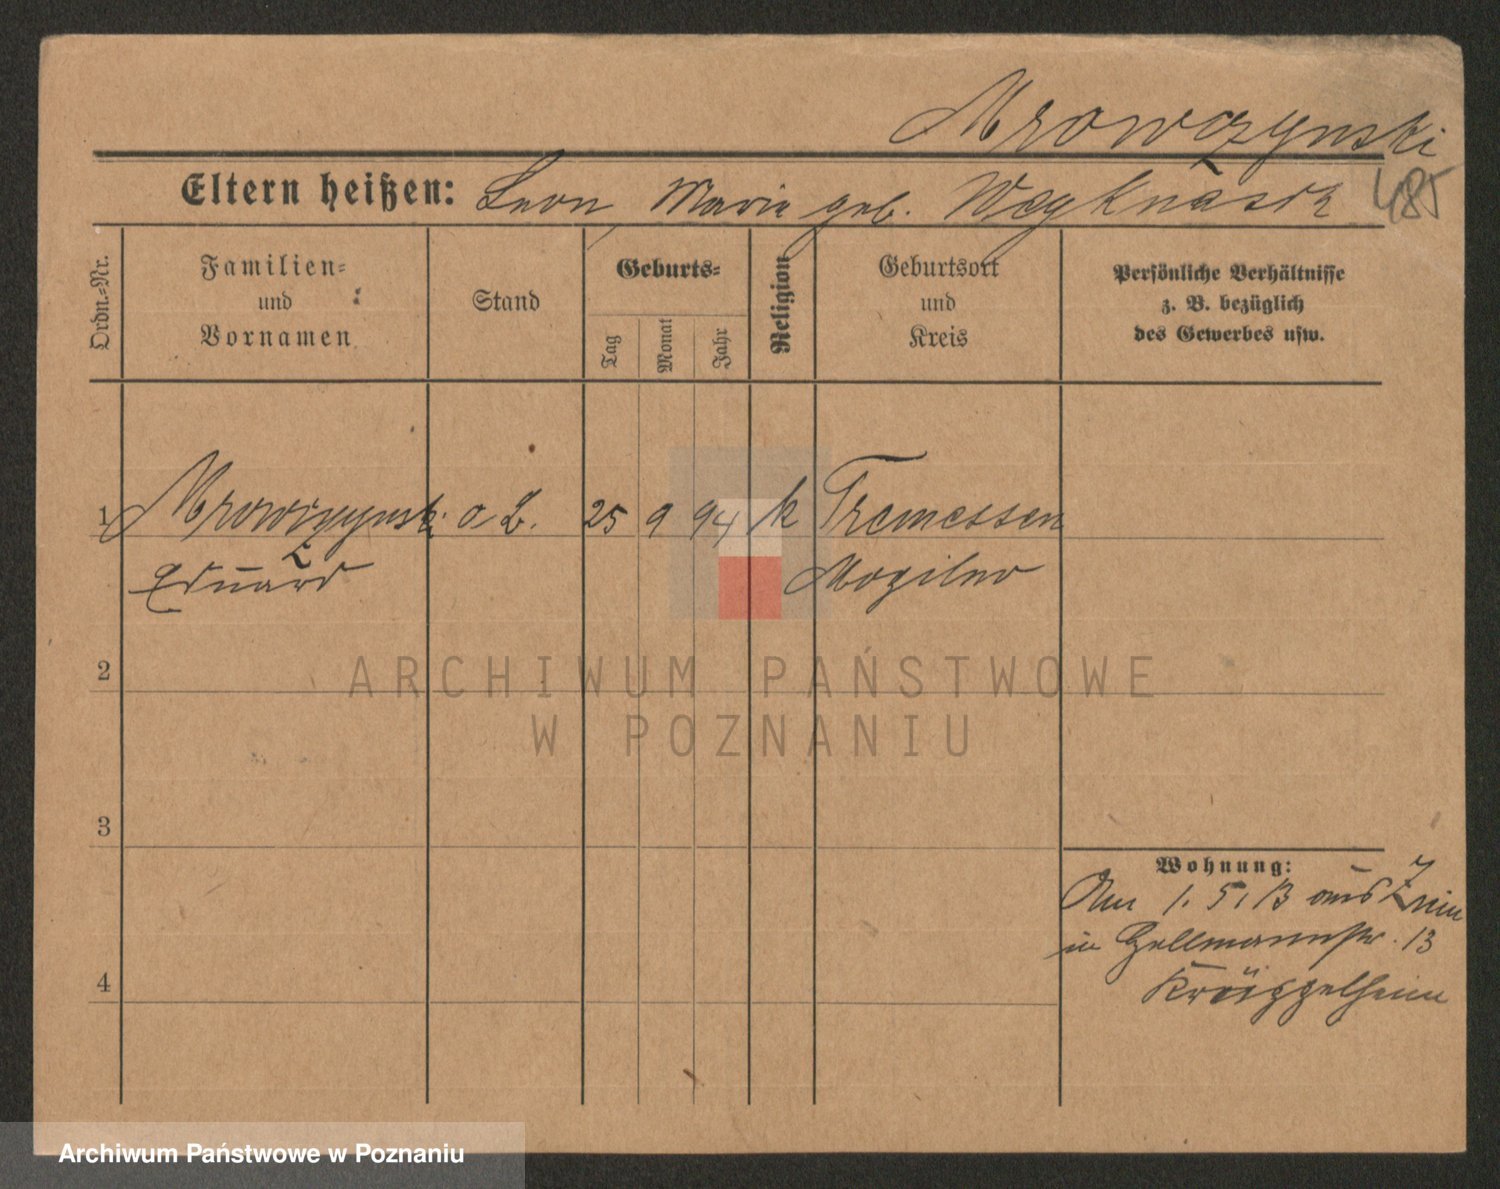 Mrowczynski
Eltern heißen: Leon Marie geb. 485
Ordn.-Nr.
Familien-
und
Vornamen
Stand
Geburts-
Tag
Monat
Jahr
Religion
Geburtsort
und
Kreis
Persönliche Verhältnisse
z. B. bezüglich
des Gewerbes usw.
1 Mrowczynski a L. 25 9 94 k Tremessen
Eduard Mogilno
2
ARCHIWUM PAŃSTWOWE
W POZNANIU
3
Wohnung:
Am 1. 5. 13 aus Znin
in Hellmannstr. 13
4
Archiwum Państwowe w Poznaniu